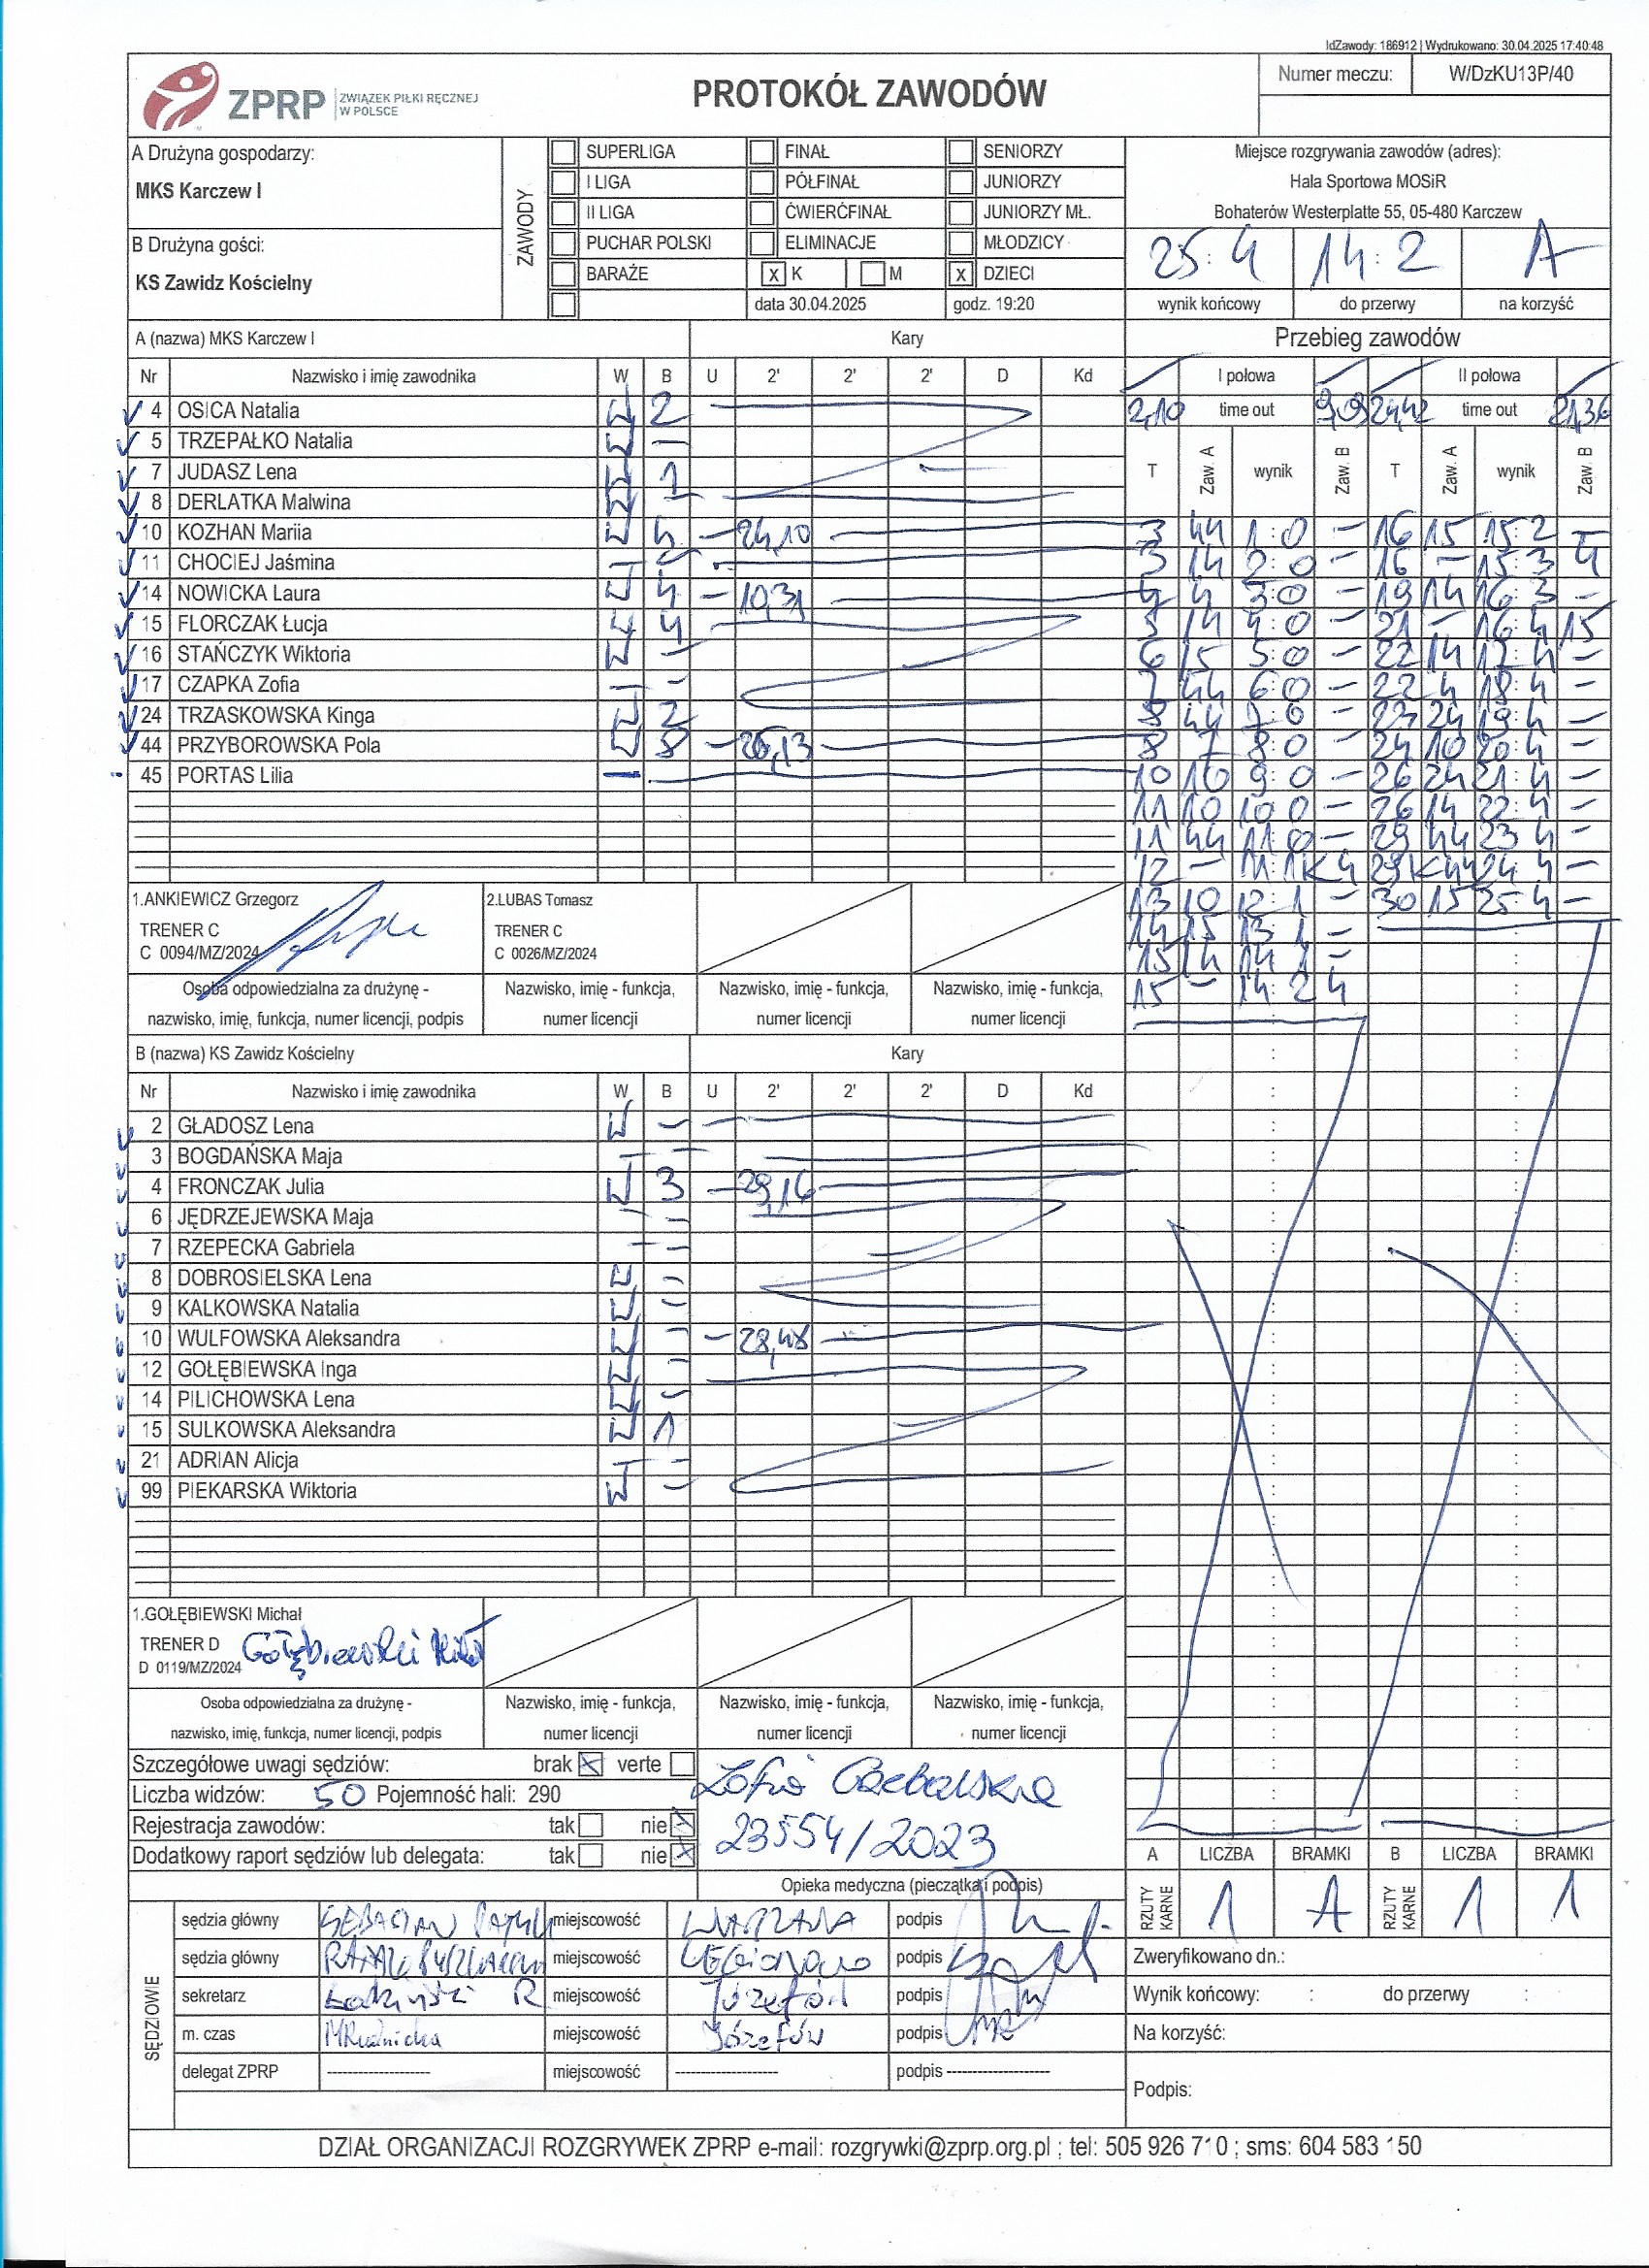 IdZawody: 186912 | Wydrukowano: 30.04.2025 17:40:48
ZPRP ZWIĄZEK PIŁKI RĘCZNEJ
W POLSCE
PROTOKÓŁ ZAWODÓW
Numer meczu: W/DzKU13P/40
A Drużyna gospodarzy:
MKS Karczew I
B Drużyna gości:
KS Zawidz Kościelny
ZAWODY
SUPERLIGA FINAŁ SENIORZY
I LIGA PÓŁFINAŁ JUNIORZY
II LIGA ĆWIERĆFINAŁ JUNIORZY MŁ.
PUCHAR POLSKI ELIMINACJE MŁODZICY
BARAŻE x K M x DZIECI
data 30.04.2025 godz. 19:20
Miejsce rozgrywania zawodów (adres):
Hala Sportowa MOSiR
Bohaterów Westerplatte 55, 05-480 Karczew
25:4 14:2 A
wynik końcowy do przerwy na korzyść
A (nazwa) MKS Karczew I Kary
Nr Nazwisko i imię zawodnika W B U 2' 2' 2' D Kd
4 OSICA Natalia 2
5 TRZEPAŁKO Natalia —
7 JUDASZ Lena 1
8 DERLATKA Malwina
10 KOZHAN Mariia 4 — 24,10
11 CHOCIEJ Jaśmina
14 NOWICKA Laura — 10,31
15 FLORCZAK Łucja 4
16 STAŃCZYK Wiktoria —
17 CZAPKA Zofia —
24 TRZASKOWSKA Kinga 2
44 PRZYBOROWSKA Pola — 26,13
45 PORTAS Lilia —
1.ANKIEWICZ Grzegorz
TRENER C
C 0094/MZ/2024
2.LUBAS Tomasz
TRENER C
C 0026/MZ/2024
Osoba odpowiedzialna za drużynę -
nazwisko, imię, funkcja, numer licencji, podpis
Nazwisko, imię - funkcja,
numer licencji
Nazwisko, imię - funkcja,
numer licencji
Nazwisko, imię - funkcja,
numer licencji
B (nazwa) KS Zawidz Kościelny Kary
Nr Nazwisko i imię zawodnika W B U 2' 2' 2' D Kd
2 GŁADOSZ Lena —
3 BOGDAŃSKA Maja —
4 FRONCZAK Julia 3 — 29,16
6 JĘDRZEJEWSKA Maja —
7 RZEPECKA Gabriela —
8 DOBROSIELSKA Lena —
9 KALKOWSKA Natalia —
10 WULFOWSKA Aleksandra — — 28,48
12 GOŁĘBIEWSKA Inga —
14 PILICHOWSKA Lena —
15 SULKOWSKA Aleksandra 1
21 ADRIAN Alicja
99 PIEKARSKA Wiktoria —
1.GOŁĘBIEWSKI Michał
TRENER D
D 0119/MZ/2024
Gołębiewski
Osoba odpowiedzialna za drużynę -
nazwisko, imię, funkcja, numer licencji, podpis
Nazwisko, imię - funkcja,
numer licencji
Nazwisko, imię - funkcja,
numer licencji
Nazwisko, imię - funkcja,
numer licencji
Przebieg zawodów
I połowa II połowa
2,10 time out 9,09 24,42 time out 21,36
T Zaw. A wynik Zaw. B T Zaw. A wynik Zaw. B
3 44 1:0 — 16 15 15:2 —
3 14 2:0 — 16 — 15:3 4
4 4 3:0 — 19 14 16:3 —
5 14 4:0 — 21 — 16:4 15
6 15 5:0 — 22 14 17:4 —
7 44 6:0 — 22 4 18:4 —
8 44 7:0 — 23 24 19:4 —
8 7 8:0 — 24 10 20:4 —
10 10 9:0 — 26 24 21:4 —
11 10 10:0 — 26 14 22:4 —
11 44 11:0 — 29 44 23:4 —
12 — 11:1 K4 29 K44 24:4 —
13 10 12:1 — 30 15 25:4 —
14 15 13:1 —
15 14 14:1 —
15 — 14:2 4
Szczegółowe uwagi sędziów: brak x verte
Liczba widzów: 50 Pojemność hali: 290
Rejestracja zawodów: tak nie x
Dodatkowy raport sędziów lub delegata: tak nie x
Zofia
23554/2023
Opieka medyczna (pieczątka i podpis)
A LICZBA BRAMKI B LICZBA BRAMKI
RZUTY KARNE 1 1 RZUTY KARNE 1 1
SĘDZIOWIE
sędzia główny SEBASTIAN miejscowość WARSZAWA podpis
sędzia główny RAFAŁ miejscowość LEGIONOWO podpis
sekretarz R miejscowość Józefów podpis
m. czas M Rudnicka miejscowość Józefów podpis
delegat ZPRP -------------------- miejscowość -------------------- podpis --------------------
Zweryfikowano dn.:
Wynik końcowy: : do przerwy :
Na korzyść:
Podpis:
DZIAŁ ORGANIZACJI ROZGRYWEK ZPRP e-mail: rozgrywki@zprp.org.pl ; tel: 505 926 710 ; sms: 604 583 150